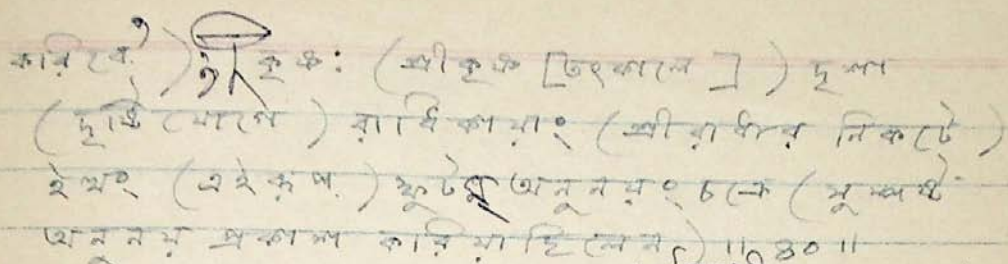 করিবে?’) কৃষ্ণঃ (শ্রীকৃষ্ণ [তৎকালে]) দৃশা
(দৃষ্টিযোগে) রাধিকায়াং (শ্রীরাধার নিকটে)
ইত্থং (এইরূপ) স্ফুটম্ অনুনয়ং চক্রে (সুস্পষ্ট
অনুনয় প্রকাশ করিয়াছিলেন) ॥৪০॥